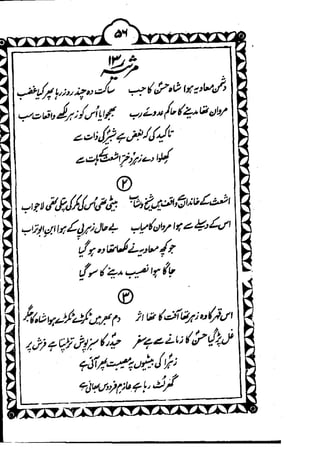 ۵۶
مرثیہ ۱۳
دشمن معاویہ ہوا شاہ حسنؑ کا جب ساکت وہ چند روز رہا پھر کیا غضب
مروان تھا مدینے کا حاکم عدوئے رب بھجوایا اُس کو زہر لکھے واقعات سب
تاکید کی کہ بغض ہے شبرؑ کی ذات سے
کھلوا دے زہر دختر اشعث کے ہات سے
۲
اشعث کے خانداں سے واقف ہیں شیخ و شاب بیٹی تھی اُس کی مکر کی پتلی تھی لاجواب
اس کے وسیلے سے ہوا مروان کامیاب بے حال زہر پی کے ہوا ابن بوتراب
جو کچھ معاویہ نے لکھا تھا وہ ہو گیا
جاگا ہوا نصیب مدینے کا سو گیا
۳
اس قہر کا وہ زہر تھا آفت کا تھا اثر دم بھر میں ٹکڑے ٹکڑے ہوا شاہ کا جگر
غل پڑ گیا حسنؑ کا زمانے سے ہے سفر حیدرؑ کا سبز پوش تڑپتا ہے فرش پر
زہراؑ کی بیٹیوں پہ مصیبت پھر آئی ہے
گھر لٹ رہا ہے عازم فردوس بھائی ہے